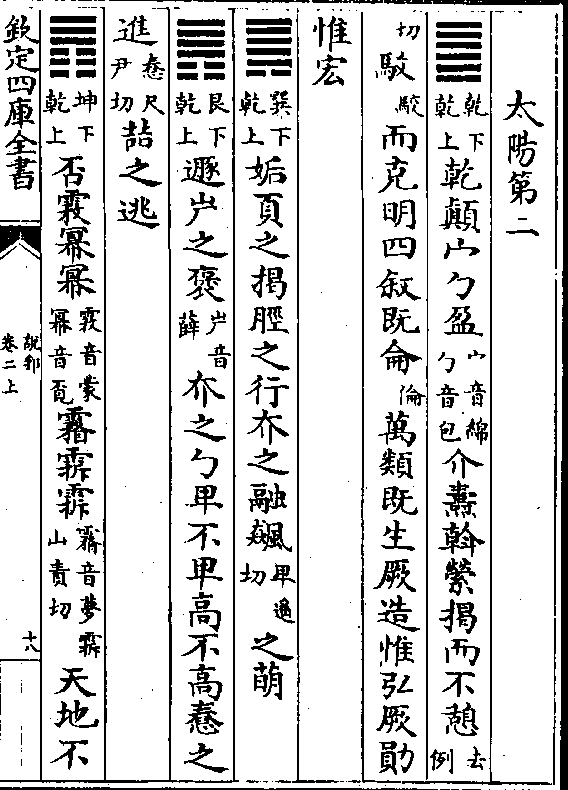 太陽第二
䷀乾下乾上乾顛宀勹盈宀音綿勹音包介燾榦縈揭而不憩去例
切駇駮而克明四叙既侖倫萬類既生厥造惟弘厥勛
惟宏
䷫巽下乾上姤頁之揭脛之行夰之融飊甲遥切之萌
䷠艮下乾上遯屵之褒屵音薛夰之勹甲不甲高不高憃之
進憃尺尹切喆之逃
䷋坤下乾上否霿冪冪霿音蒙冪音覔霿霹霹音夢山責切天地不
欽定四庫全書
説郛
卷二上
十八